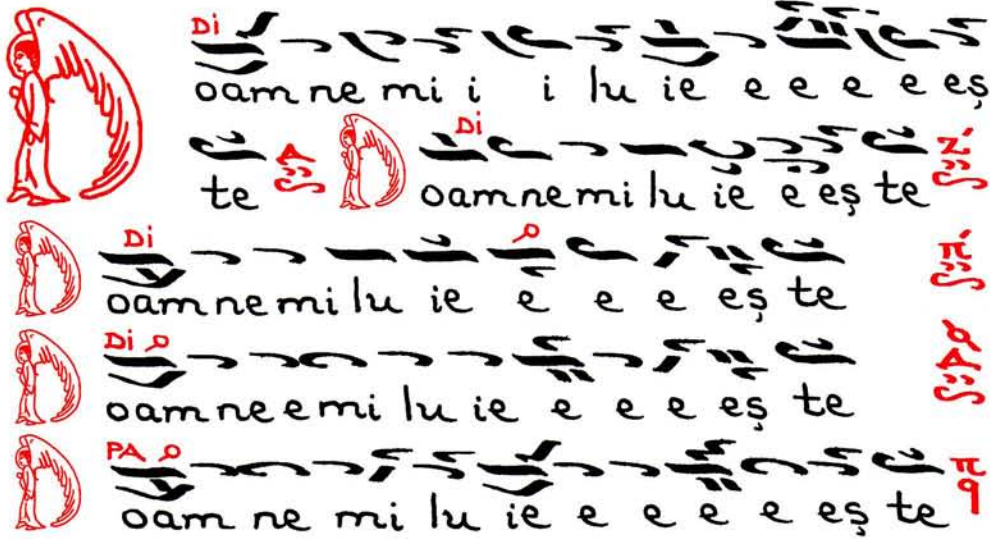 Di
Doam ne mi i i lu ie e e e e eş
Di
te Doam ne mi lu ie e eş te
Di
Doam ne mi lu ie e e e eş te
Di
Doam ne e mi lu ie e e e eş te
PA
Doam ne mi lu ie e e e e eş te